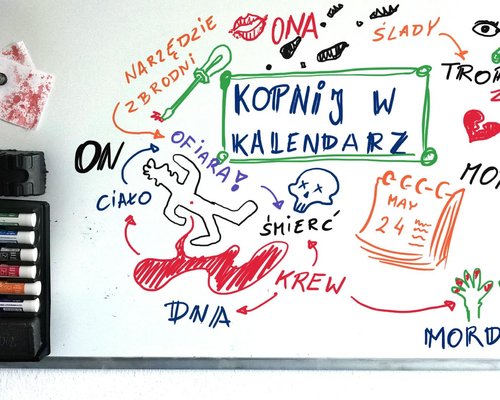 ONA
ŚLADY
NARZĘDZIE
ZBRODNI
KOPNIJ W
KALENDARZ
TROP
OFIARA!
ON
CIAŁO
MAY
24
ŚMIERĆ
KREW
DNA
MORD